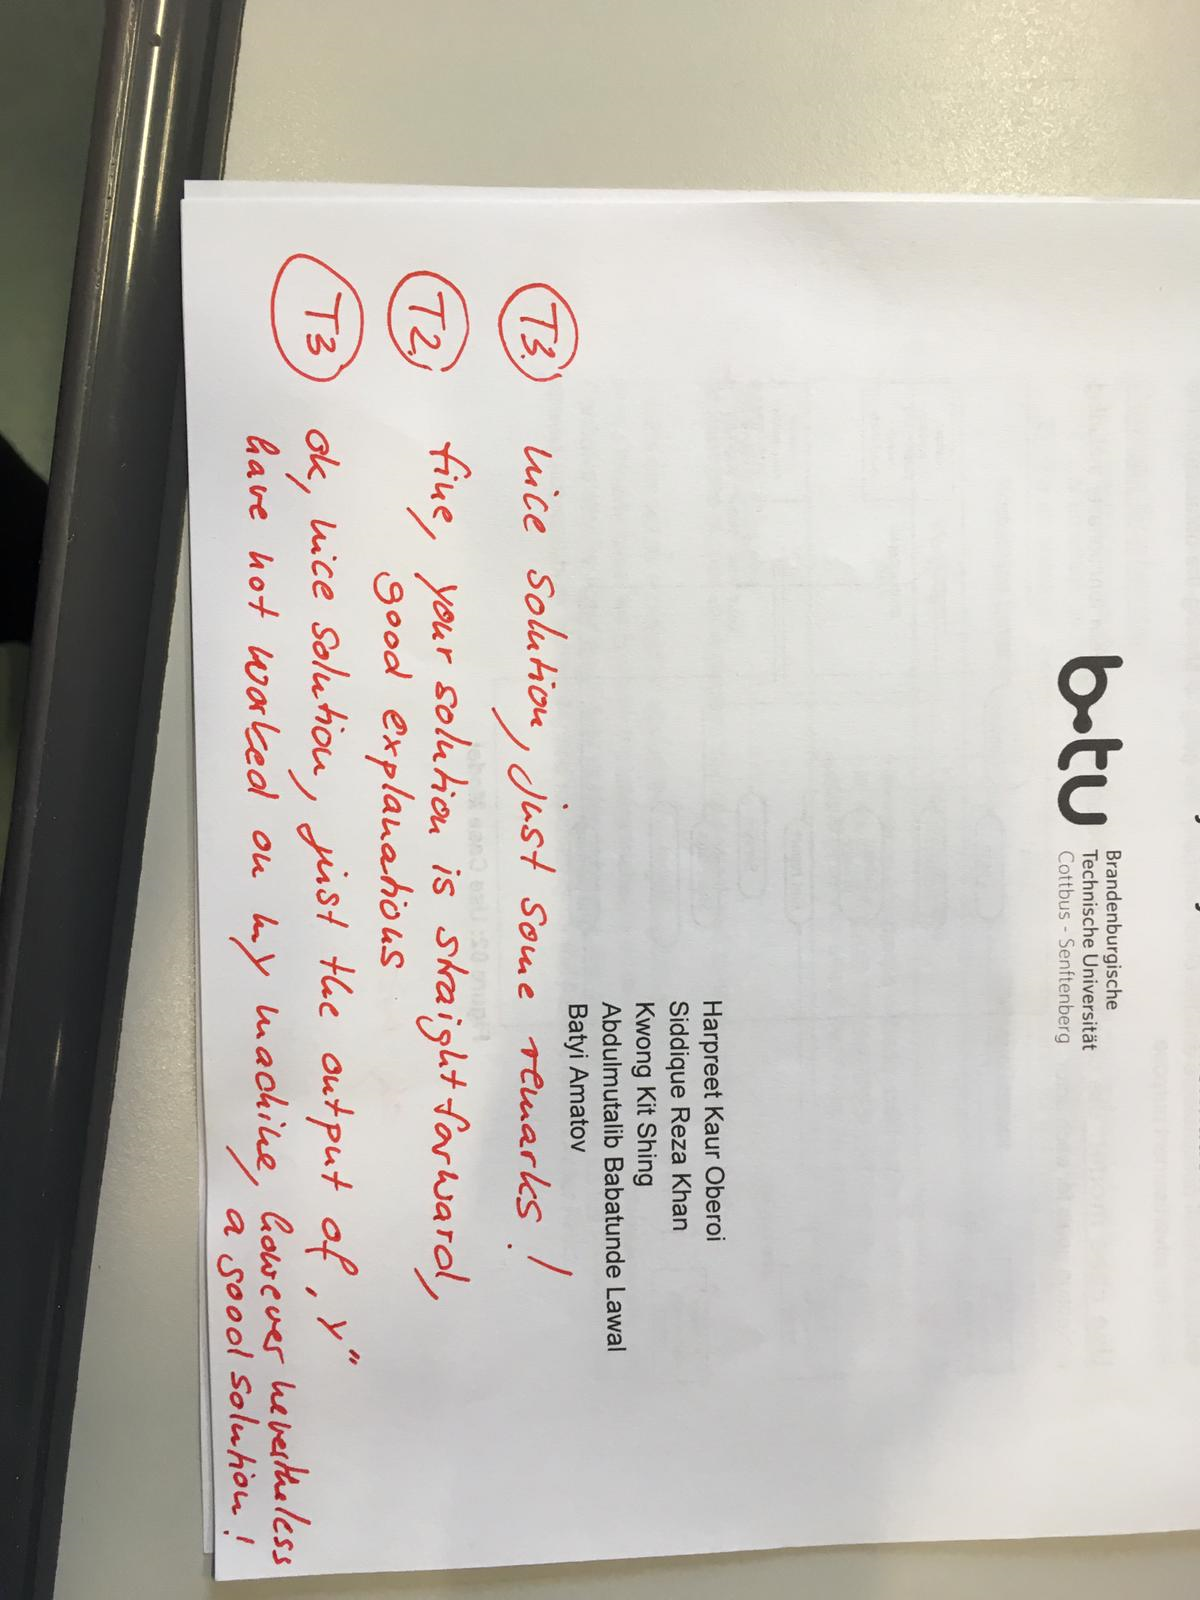 b-tu
Brandenburgische
Technische Universität
Cottbus - Senftenberg
Harpreet Kaur Oberoi
Siddique Reza Khan
Kwong Kit Shing
Abdulmutalib Babatunde Lawal
Batyi Amatov
T3. nice solution, just some remarks!
T2. fine, your solution is straight forward,
good explanations
T3 ok, nice solution, just the output of "y"
have not worked on my machine, however nevertheless
a good solution!